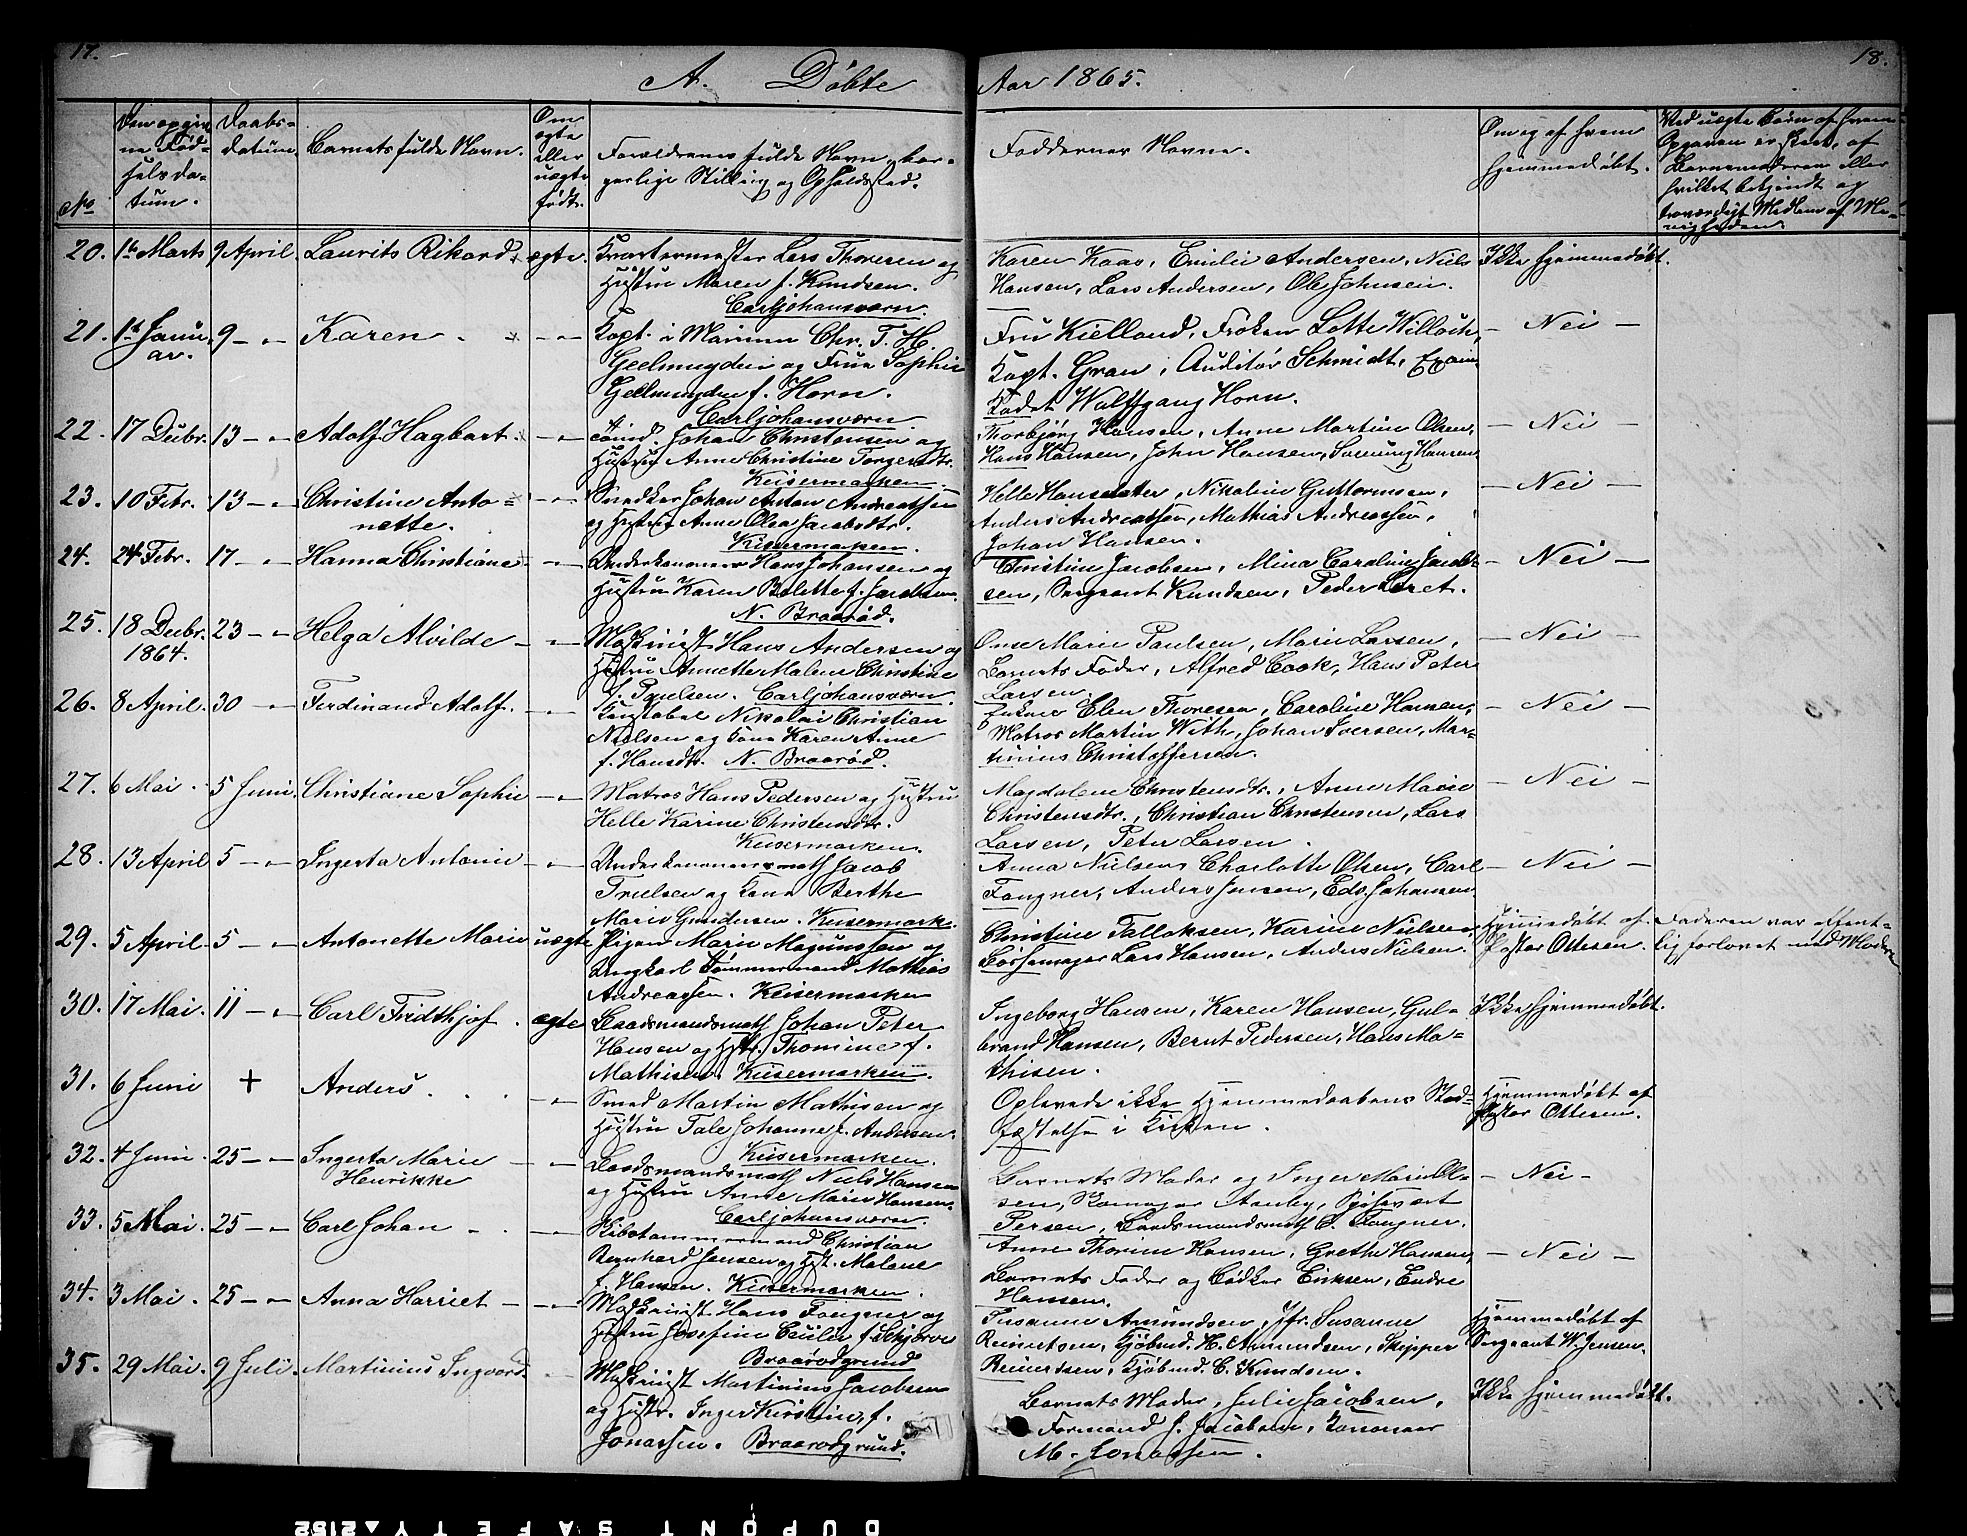 17.
A. Døbte
Aar 1865.
18.
No
Den opgiv
ne Fød-
selsda-
tum.
Daabs-
datum.
Barnets fulde Navn.
Om
ægte
eller
uægte
født.
Forældrenes fulde Navn, bor-
gerlige Stilling og Opholdssted.
Faddernes Navne.
Om og af hvem
hjemmedøbt.
Ved uægte Børn af hvem
Opgaven er skeet, af
Barnemoderen eller
hvilket bekjendt og
troværdigt Medlem af Me-
nigheden.
20. 1te Marts 9 April. Laurits Rikard ægte. Kvartermester Lars Thoresen og
Hustru Maren f. Knudsen.
Carljohansværn.
Karen Kaas, Emilie Andersen, Niels
Hansen, Lars Andersen, Ole Johnsen.
Ikke hjemmedøbt.
21. 1te Janu
ar. 9 - " - Karen. - " - Capt. i Marinen Chr. T. H.
Geelmuyden og Frue Sophie
Geelmuyden f. Horn.
Carljohansværn.
Fru Kielland, Frøken Lotte Willoch,
Capt. Gran, Auditør Schmidt, Exam.
Kadet Wulffgang Horn.
- Nei -
22. 17 Decbr. 13 - " - Adolf Hagbart - " - Johan Christensen og
Hustru Anne Christine Torgersdtr.
Keisermarken.
Thorbjørg Hansen, Anne Martine Olsen,
Hans Hansen, John Hansen, Hansen.
- Nei -
23. 10 Febr. 13 - " - Christine Anto=
nette. - " - Snedker Johan Anton Andreassen
og Hustru Anne Olea Jacobsdtr.
Keisermarken.
Helle Hansdatter, Nikoline Guttormsen,
Anders Andreassen, Mathias Andreassen,
Johan Hansen.
- Nei -
24. 24 Febr. 17 - " - Hanna Christiane - " - Underkanoneer Hans Johansen og
Hustru Karen Bolette f. Jacobsen.
N. Braarød.
Christine Jacobsen, Mina Caroline Jacob-
sen, Sergeant Knudsen, Peder
- Nei -
25. 18 Decbr.
1864. 23 - " - Helga Alvilde - " - Maskinist Hans Andersen og
Hustru Annette Malene Christine
f. Paulsen. Carljohansværn.
Marie Paulsen, Marie Larsen,
Barnets Fader, Alfred Cook, Hans Peter
Larsen.
- Nei -
26. 8 April. 30 - " - Ferdinand Adolf. - " - Konstabel Nikolai Christian
Nielsen og Kone Karen Anne
f. Hansdtr. N. Braarød.
Enken Elen Thoresen, Caroline Hansen,
Matros Martin With, Johan Iversen, Mar-
tinius Christoffersen.
- Nei -
27. 6 Mai. 5 Juni. Christiane Sophie - " - Matros Hans Pedersen og Hustru
Helle Karine Christensdtr.
Keisermarken.
Magdalene Christensdtr., Anne Marie
Christensdtr., Christian Christensen, Lars
Larsen, Peter Larsen.
- Nei -
28. 13 April 5 - " - Ingerta Antonie - " - Underkanoneersmath Jacob
Truelsen og Kone Berthe
Marie Gundersen. Keisermark.
Anna Nielsen, Charlotte Olsen, Carl
Fougner, Anders Jensen, Edv. Johansen.
- Nei -
29. 5 April. 5 - " - Antonette Marie uægte Pigen Marie Magnussen og
Ungkarl Tømmermand Mathias
Andreassen. Keisermarken
Christine Tallaksen, Karine Nielsen,
Børsemager Lars Hansen, Anders Nielsen.
Hjemmedøbt af
Pastor Ottesen.
Faderen var offent-
lig forlovet med Moderen
30. 17 Mai. 11 - " - Carl Fridthjof. ægte Baadsmandsmath Johan Peter
Hansen og Hstr. Thomine f.
Mathisen. Keisermarken.
Ingeborg Hansen, Karen Hansen, Gul-
brand Hansen, Bernt Pedersen, Hans Ma-
thisen.
Ikke hjemmedøbt.
31. 6 Juni + Anders. - " - Smed Martin Mathisen og
Hustru Tale Johanne f. Andersen.
Keisermarken.
Oplevede ikke Hjemmedaabens Stad-
fæstelse i Kirken.
Hjemmedøbt af
Pastor Ottesen.
32. 4 Juni. 25 - " - Ingerta Marie
Henrikke - " - Baadsmandsmath Niels Hansen
og Hustru Anne Marie Hansen.
Carljohansværn.
Barnets Moder og Inger Marie Ol-
sen, Aanby,
Persen, Baadsmandsmath C. Fougner.
- Nei -
33. 5 Mai. 25 - " - Carl Johan - " - Skibstømmermand Christian
Bernhard Jensen og Hst. Malene
f. Hansen. Keisermarken.
Anne Thorine Hansen, Grethe Hansen,
Barnets Fader og Bødker Eriksen, Endre
Hansen.
- Nei -
34. 3 Mai. 25 - " - Anna Harriet - " - Maskinist Hans Fougner og
Hustru Josefine Cecilie f. Schjørve
Braarødgrund
Susanne Amundsen, Jfr. Susanne
Reinertsen, Kjøbmd. H. Amundsen, Skipper
Reinertsen, Kjøbmd. C. Knudsen.
Hjemmedøbt af
Sergeant W. Jensen.
35. 29 Mai. 9 Juli. Martinius Ingvard. - " - Maskinist Martinius Jacobsen
og Hustr. Inger Kirstine, f.
Jonassen. Braarødgrund.
Barnets Moder, Julie Jacobsen,
Formand J. Jacobsen, Kanoneer
M. Jonassen.
Ikke hjemmedøbt.
DUPONT SAFETY 2152